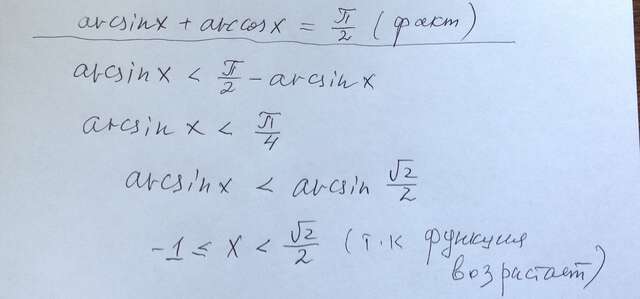 arcsinx + arccosx = π/2 (факт)
arcsin x < π/2 - arcsin x
arcsin x < π/4
arcsinx < arcsin √2/2
-1 ≤ x < √2/2 (т.к функция
возрастает)